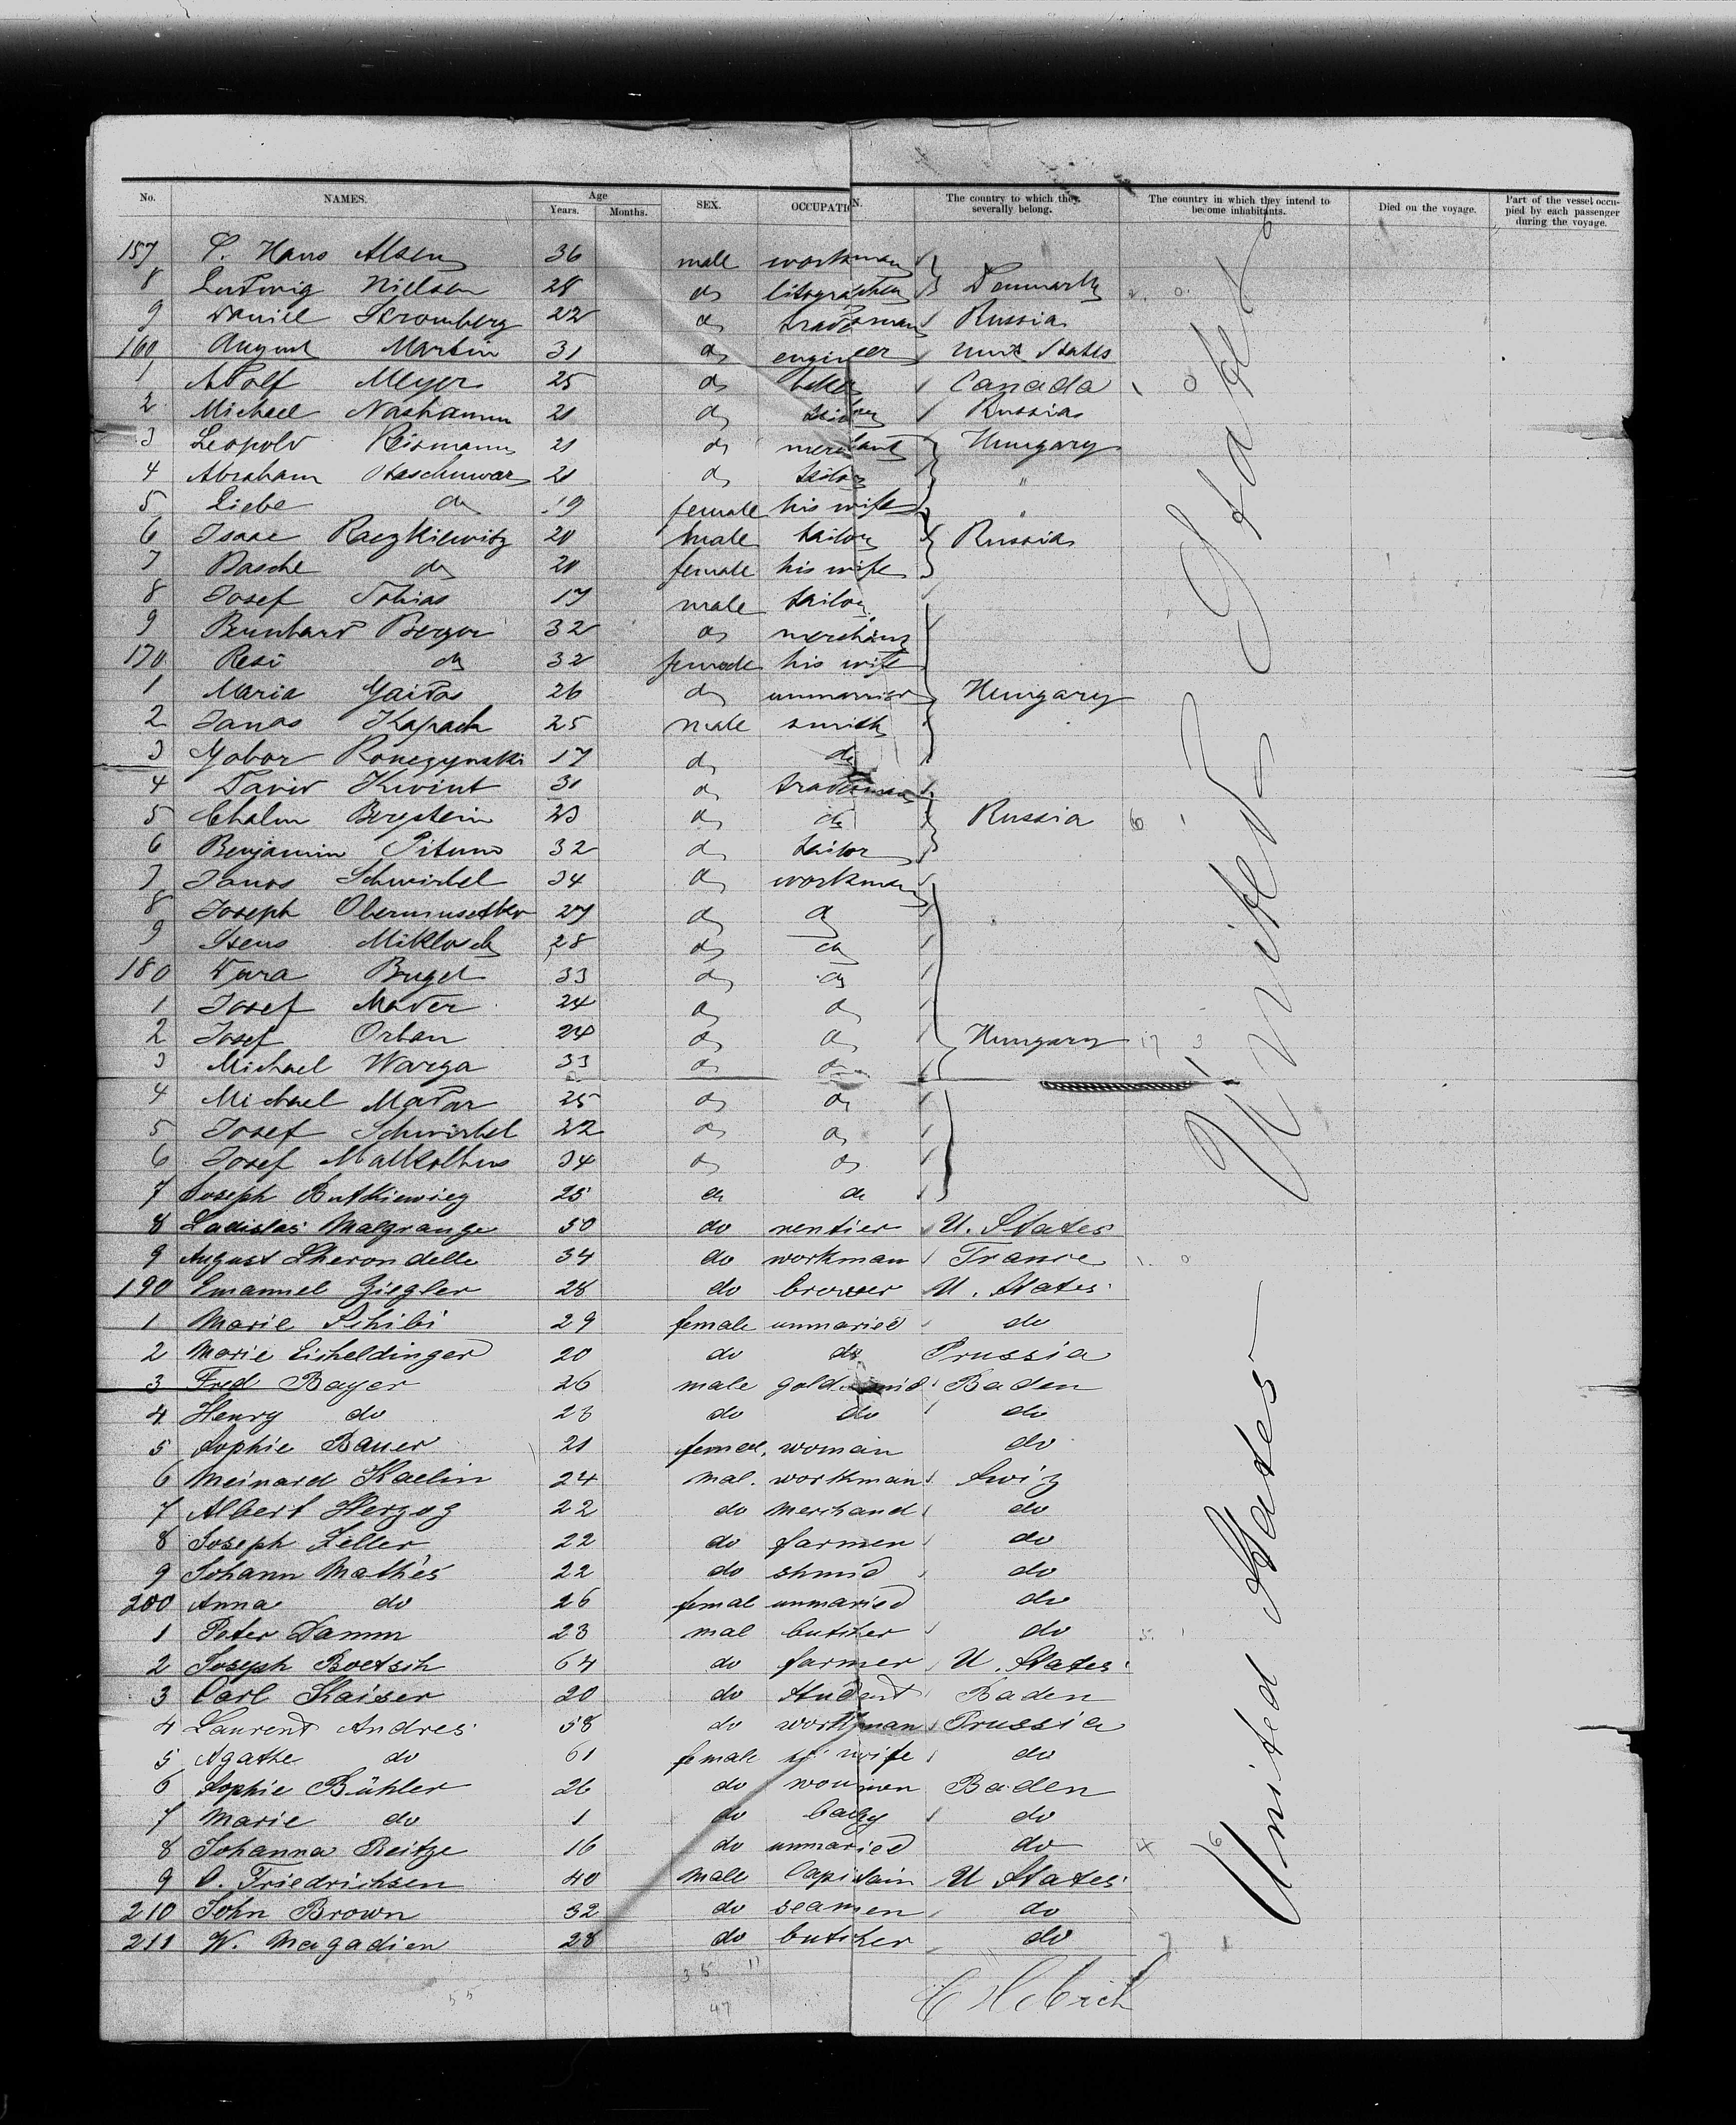 No. NAMES. Age Years. Months. SEX. OCCUPATION. The country to which they severally belong. The country in which they intend to become inhabitants. Died on the voyage. Part of the vessel occupied by each passenger during the voyage.
157 P. Hans Alsen 36 male workman
8 Ludwig Nielsen 28 do litographer Denmark
9 Daniel Stromberg 22 do tradesman Russia
160 August Martin 31 do engineer Unit States
1 Adolf Meyer 25 do Canada 1 0
2 Michael 21 do tailor Russia
3 Leopold Reismann 21 do merchant Hungary
4 Abraham 21 do tailor "
5 Liebe do 19 female his wife "
6 Isaac Raczkiewitz 20 male tailor Russia
7 Basche do 20 female his wife
8 Josef Tobias 17 male tailor
9 Bernhard Berger 32 do merchant
170 Resi do 32 female his wife
1 Maria Gaidos 26 do unmarried Hungary
2 Janos Kapach 25 male smith
3 Gabor Ronczynski 17 do do
4 David Kwint 31 do tradesman
5 Chaim Bergstein 23 do do Russia 6 1
6 Benjamin Pituno 32 do tailor
7 Janos Schwirbel 34 do workman
8 Joseph 27 do do
9 Miklosch 28 do do
180 Dura Bugel 33 do do
1 Josef Mader 24 do do
2 Josef Orban 24 do do Hungary 17 3
3 Michael Warga 33 do do
4 Michael Madar 25 do do
5 Josef Schwirbel 22 do do
6 Josef 34 do do
7 Joseph Butkiewicz 25 do do
8 Ladislas Malgrange 50 do rentier U. States
9 August Lherondelle 34 do workman France 1. 0
190 Emanuel Ziegler 28 do brower U. States
1 Marie Schibi 29 female unmaried do
2 Marie Eicheldinger 20 do do Prussia
3 Fred Bayer 26 male Baden
4 Henry do 23 do do do
5 Sophie Bauer 21 femal. woman do
6 Meinard Kaelin 24 mal. workman Swiz
7 Albert Herzog 22 do merchand do
8 Joseph Zeller 22 do farmer do
9 Johann Mathès 22 do shmid do
200 Anna do 26 femal unmaried do
1 Peter Damm 23 mal butcher do
2 Joseph Boetsch 64 do farmer U. States
3 Carl Kaiser 20 do Student Baden
4 Laurent Andres 58 do workman Prussia
5 Agathe do 61 female wife do
6 Sophie Bühler 26 do woumen Baden
7 Marie do 1 do baby do
8 Johanna Reitze 16 do unmaried do 4
9 O. Friedrichsen 40 male Capitain U States
210 John Brown 32 do seamen do
211 W. Magadien 28 do butcher do
United States
United States
55
35 11
47